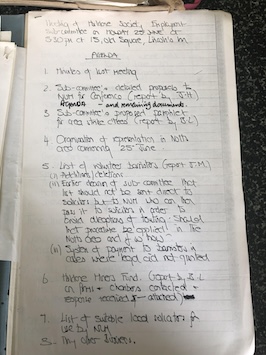 Meeting of Haldane Society Employment
Sub-committee on Monday 25th June at
5.30 pm at 15, Old Square, Lincoln's Inn
AGENDA
1. Minutes of last meeting
2. Sub-committee's detailed proposals to
NUM for Conference (report by J.H.)
AGENDA - and remaining documents.
3. Sub-committee's proposed pamphlet
for area strike offices (report by B.L)
4. Organisation of representation in North
area commencing 25th June
5. List of volunteer barristers (report J.M.)
(i) Additions/deletions
(ii) Earlier decision of sub-committee that
list should not be sent direct to
solicitors but to NUM who can then
pass it to solicitors in order to
avoid allegations of touting. Should
that procedure be applied in the
North area and if so how
(iii) System of payment to barristers in
cases where legal aid not granted
6. Haldane Miners Fund. (report by B.L
on firms + chambers contacted +
response received - attached)
7. List of suitable local solicitors for
use by NUM
8. Any other business.